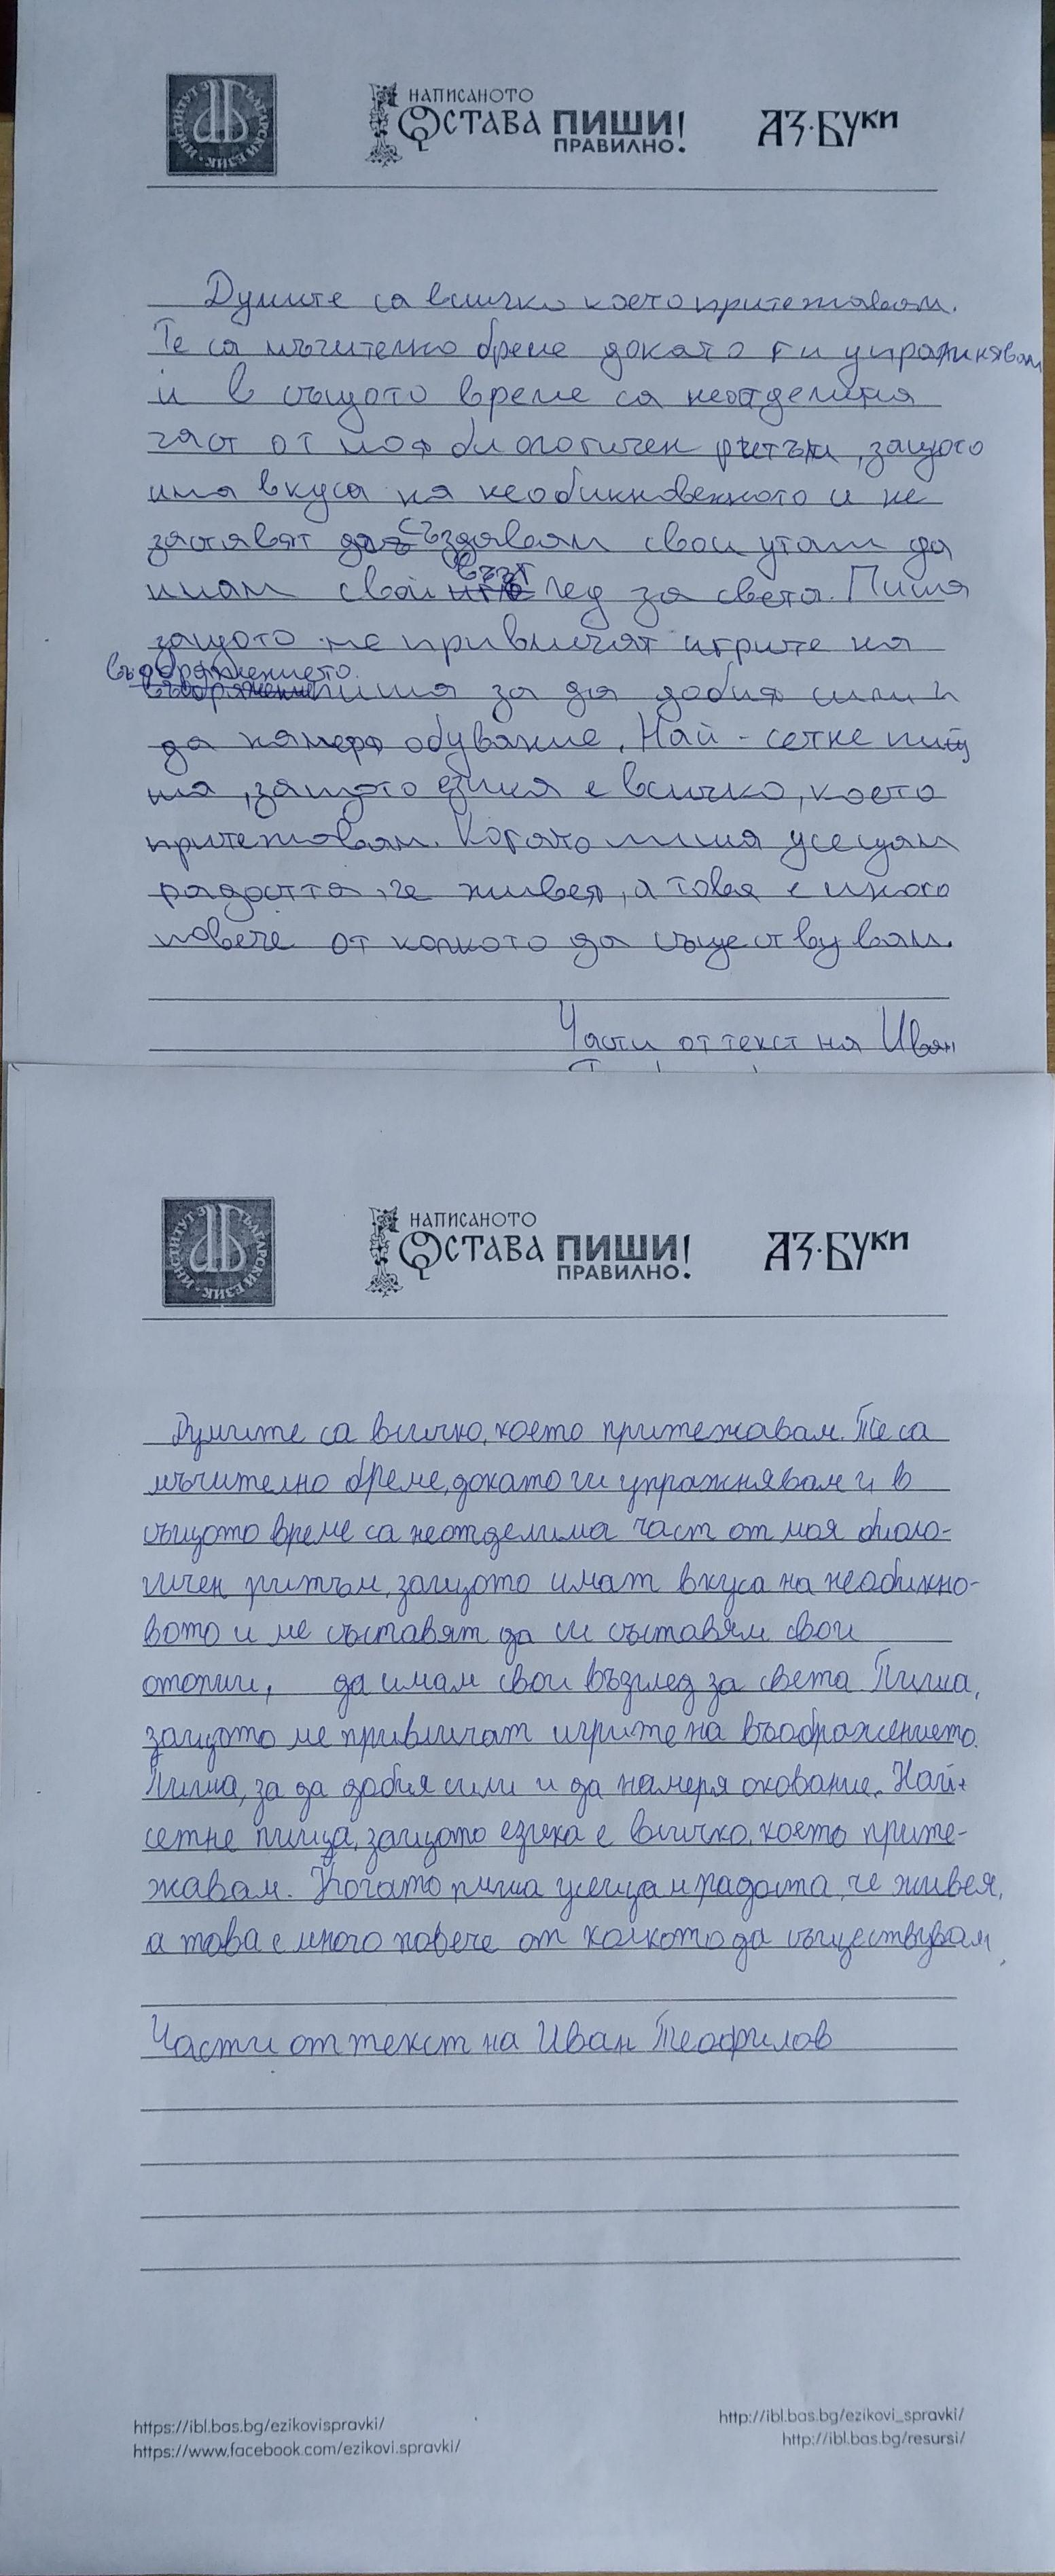 ИНСТИТУТ ЗА БЪЛГАРСКИ ЕЗИК
НАПИСАНОТО
ОСТАВА ПИШИ
ПРАВИЛНО!
АЗ·БУКИ
Думите са всичко което притежавам.
Те са мъчително бреме докато ги упражнявам
и в същото време са неотделима
част от моя биологичен ритъм, защото
има вкуса на необикновенното и не
заставят да създавам свои утопи да
имам свой възглед за света. Пиша
защото ме привличат игрите на
въображението
пиша за да добия сили и
да намеря обуване. Най-сетне пищ
ша, защото езика е всичко, което
притежавам. Когато пиша усещам
радостта, че живея, а това е много
повече от колкото да съществувам.
Части от текст на Иван
ИНСТИТУТ ЗА БЪЛГАРСКИ ЕЗИК
НАПИСАНОТО
ОСТАВА ПИШИ
ПРАВИЛНО!
АЗ·БУКИ
Думите са всичко, което притежавам. Те са
мъчително бреме, докато ги упражнявам и в
същото време са неотделима част от моя биоло-
гичен ритъм, защото имат вкуса на необикно-
вото и ме съставят да си съставям свои
отопии, да имам свои възглед за света Пиша,
защото ме привличат игрите на въображението.
Пиша, за да добия сили и да намеря окование. Най-
сетне пиша, защото езика е всичко, което прите-
жавам. Когато пиша усещам радоста, че живея,
а това е много повече от колкото да съществувам
Части от текст на Иван Теофилов
https://ibl.bas.bg/ezikovispravki/
https://www.facebook.com/ezikovi.spravki/
http://ibl.bas.bg/ezikovi_spravki/
http://ibl.bas.bg/resursi/